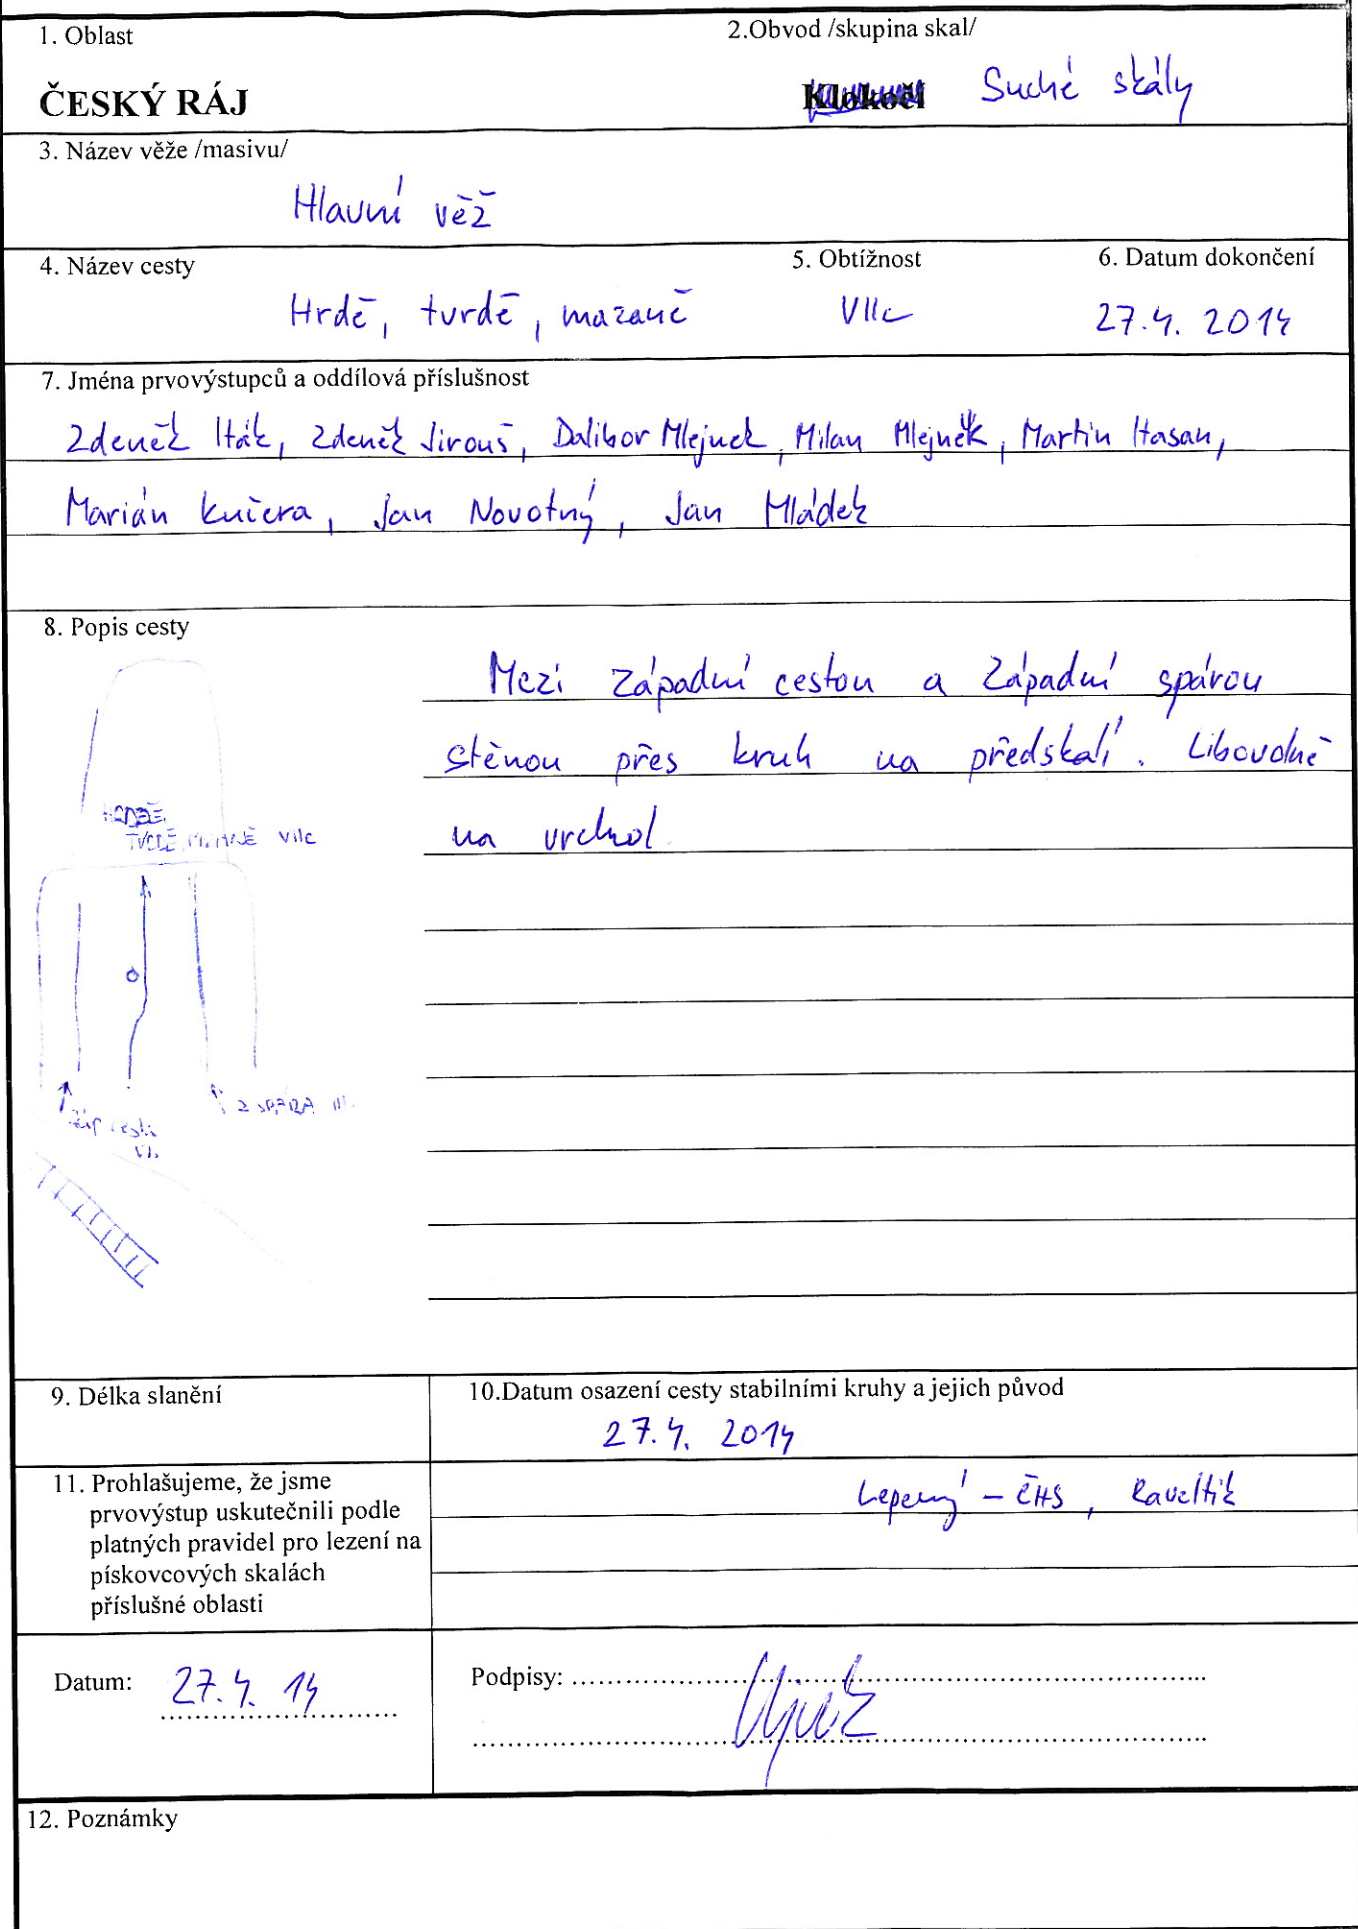 1. Oblast
2.Obvod /skupina skal/
ČESKÝ RÁJ
Klokočí Suché skály
3. Název věže /masivu/
Hlavní věž
4. Název cesty
5. Obtížnost
6. Datum dokončení
Hrdě, tvrdě, mazaně
VIIc
27.4. 2014
7. Jména prvovýstupců a oddílová příslušnost
Zdeněk Hák, Zdeněk Jirouš, Dalibor Mlejnek, Milan Mlejnek, Martin Hasan,
Marián Kučera, Jan Novotný, Jan Mládek
8. Popis cesty
Mezi Západní cestou a Západní spárou
stěnou přes kruh na předskalí. Libovolně
na vrchol.
VIIc
9. Délka slanění
10.Datum osazení cesty stabilními kruhy a jejich původ
27.4. 2014
11. Prohlašujeme, že jsme
prvovýstup uskutečnili podle
platných pravidel pro lezení na
pískovcových skalách
příslušné oblasti
Lepený - ČHS,
Datum: 27.4. 14
Podpisy:
12. Poznámky